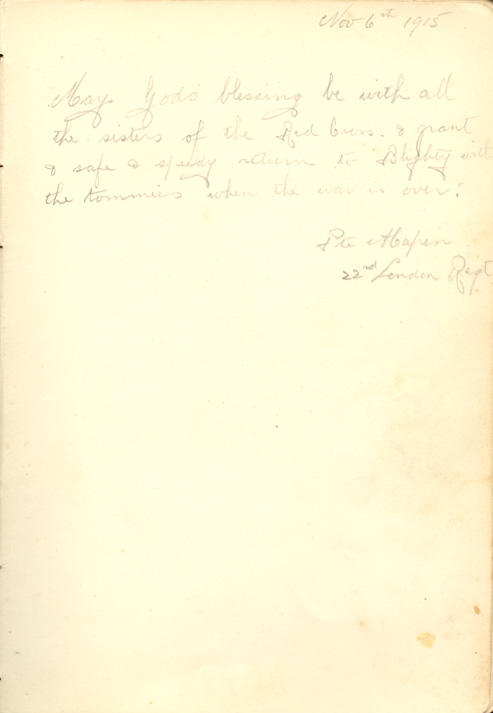 Nov 6th 1915
May Gods blessing be with all
the sisters of the Red Cross. & grant
a safe & speedy return to Blighty with
the tommies when the war is over.
Pte
22nd London Regt